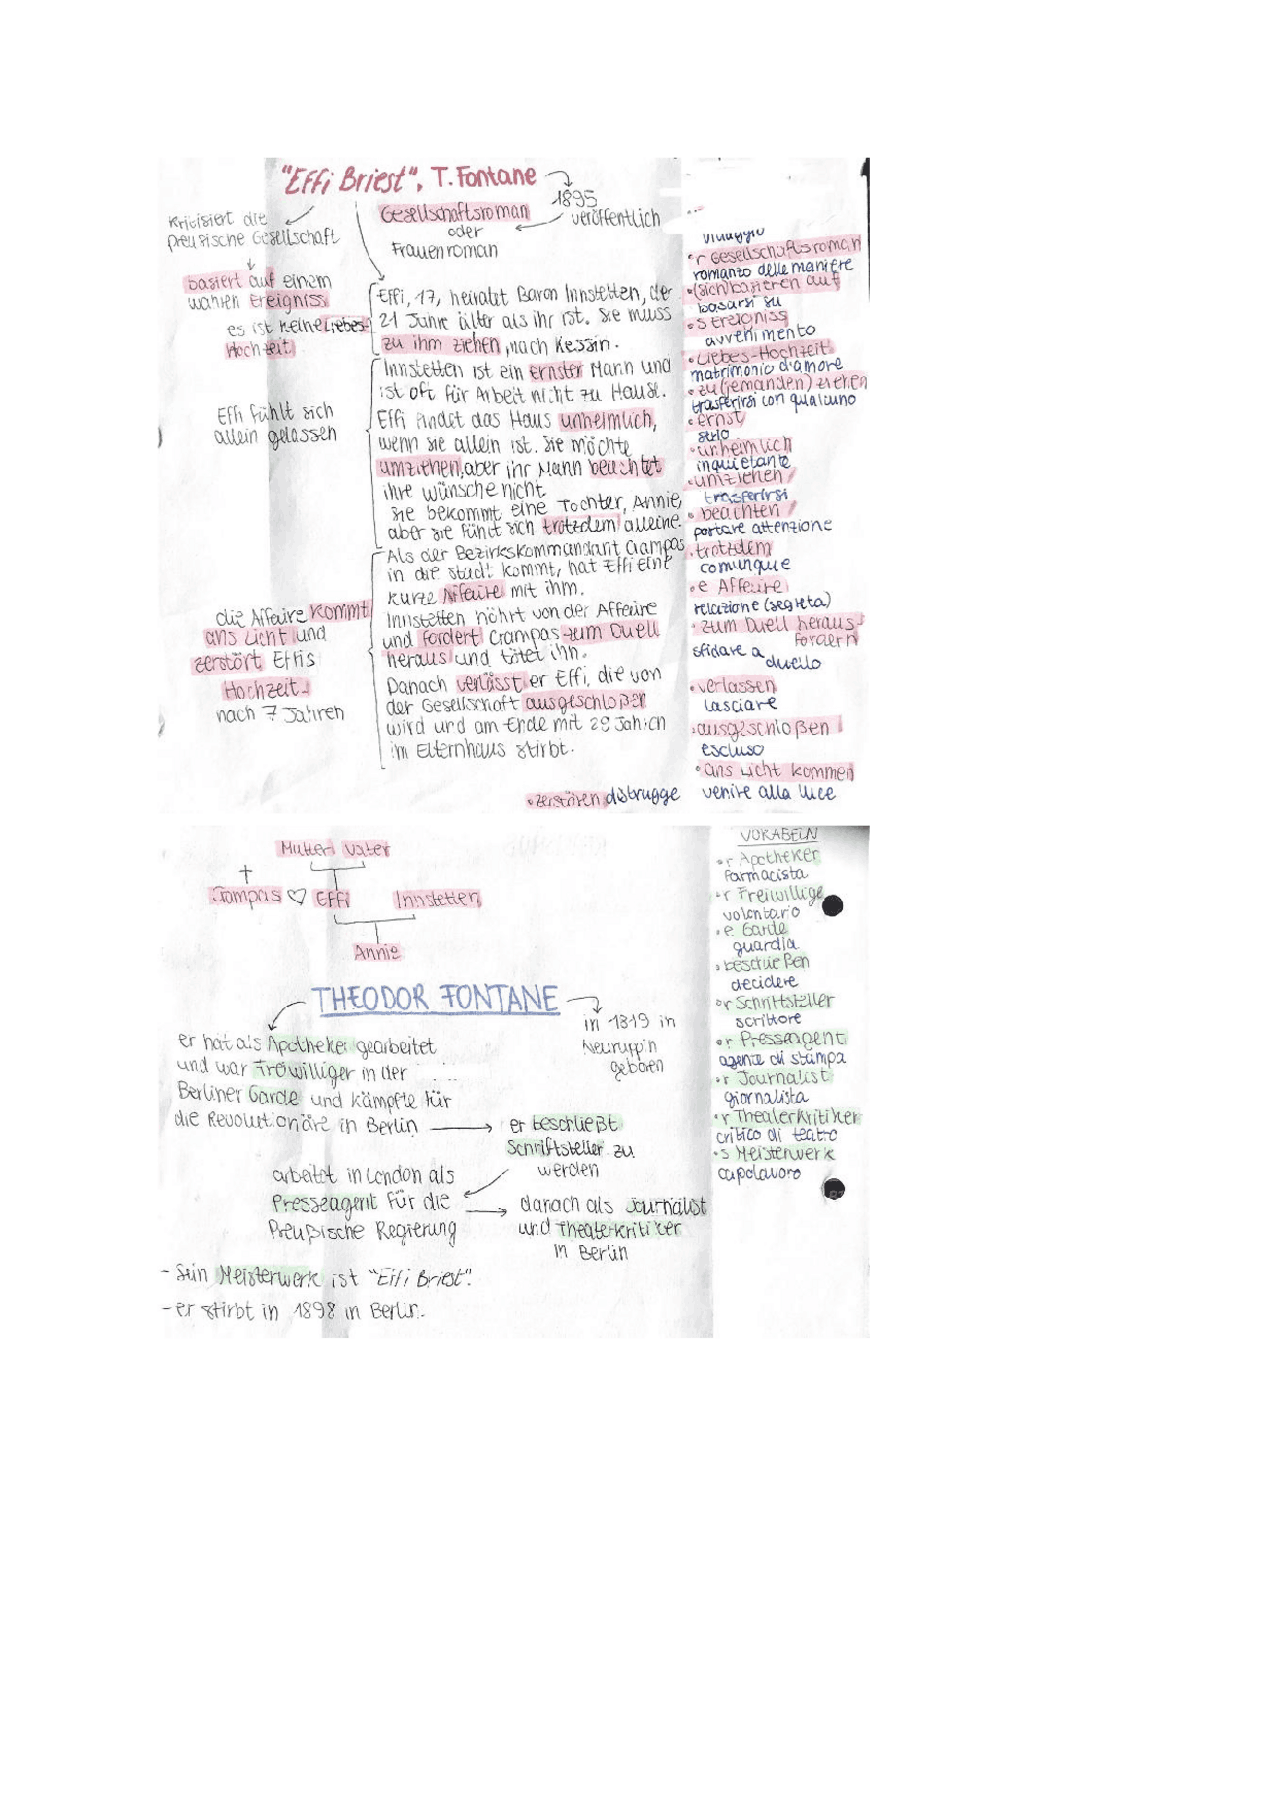 "Effi Briest", T. Fontane
1895
veröffentlich
Gesellschaftsroman
oder
Frauenroman
Kritisiert die
preußische Gesellschaft
basiert auf einem
wahren Ereigniss
es ist keine Liebes-
Hochzeit
Effi, 17, heiratet Baron Innstetten, der
21 Jahre älter als ihr ist. Sie muss
zu ihm ziehen, nach Kessin.
Innstetten ist ein ernster Mann und
ist oft für Arbeit nicht zu Hause.
Effi fühlt sich
allein gelassen
Effi findet das Haus unheimlich,
wenn sie allein ist. Sie möchte
umziehen, aber ihr Mann beachtet
ihre Wünsche nicht.
Sie bekommt eine Tochter, Annie,
aber sie fühlt sich trotzdem alleine.
Als der Bezirkskommandant Crampas
in die Stadt kommt, hat Effi eine
kurze Affeire mit ihm.
die Affeire kommt
ans Licht und
zerstört Effis
Hochzeit
nach 7 Jahren
Innstetten höhrt von der Affeire
und fordert Crampas zum Duell
heraus und tötet ihn.
Danach verlässt er Effi, die von
der Gesellschaft ausgeschloßen
wird und am Ende mit 29 Jahren
im Elternhaus stirbt.
villaggio
• r Gesellschaftsroman
romanzo delle maniere
• (sich) basieren auf
basarsi su
• s Ereigniss
avvenimento
• Liebes-Hochzeit
matrimonio d'amore
• zu (jemanden) ziehen
trasferirsi con qualcuno
• ernst
serio
• unheimlich
inquietante
• umziehen
trasferirsi
• beachten
portare attenzione
• trotzdem
comunque
• e Affeire
relazione (segreta)
• zum Duell heraus-
fordern
sfidare a
duello
• verlassen
lasciare
• ausgeschloßen
escluso
• ans Licht kommen
venire alla luce
• zerstören distrugge
Mutter Vater
Crampas ♡ Effi Innstetten
Annie
THEODOR FONTANE
in 1819 in
Neuruppin
geboren
er hat als Apotheker gearbeitet
und war Freiwilliger in der
Berliner Garde und kämpfte für
die Revolutionäre in Berlin
er beschließt
Schriftsteller zu
werden
arbeitet in London als
Presseagent für die
Preußische Regierung
danach als Journalist
und Theaterkritiker
in Berlin
- Sein Meisterwerk ist "Effi Briest".
- er stirbt in 1898 in Berlin.
VOKABELN
• r Apotheker
farmacista
• r Freiwillige
volontario
• e Garde
guardia
• beschließen
decidere
• r Schriftsteller
scrittore
• r Presseagent
agente di stampa
• r Journalist
giornalista
• r Theaterkritiker
critico di teatro
• s Meisterwerk
capolavoro